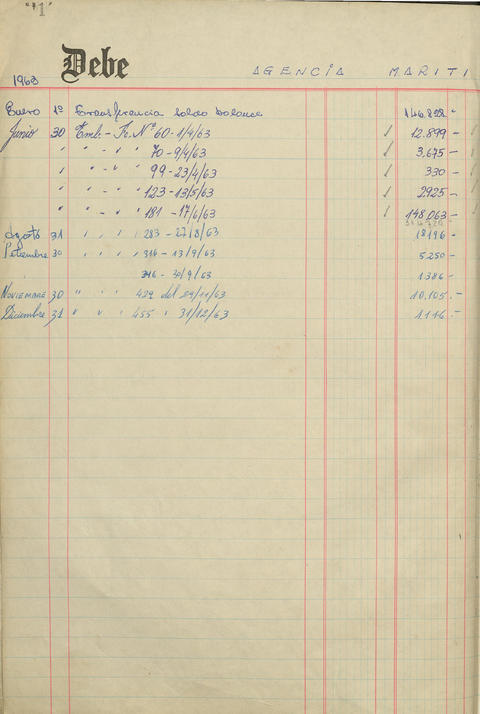 "1"
Debe
1963 AGENCIA MARITI
Enero 1º Transferencia Saldo balance 146.828 -
Junio 30 Emb. - Fc. Nº 60 - 1/4/63 12.899 -
" " - " " 70 - 9/4/63 3.675 -
" " - " " 99 - 23/4/63 330 -
" " - " " 123 - 13/5/63 2925 -
" " - " " 181 - 17/6/63 148.063 -
Agosto 31 " " " " 283 - 22/8/63 18196 -
Setembre 30 " " " " 316 - 13/9/63 5250 -
- 30/9/63 1386 -
NOVIEMBRE 30 " " " 422 del 29/11/63 10.105 . -
Diciembre 31 " " " 455 " 31/12/63 1116 . -